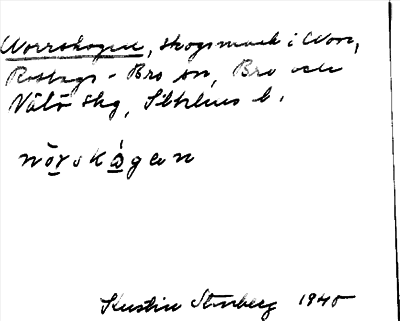 Norrskogen, skogsmark i Norr,
Roslags-Bro sn, Bro och
Vätö skg, Sthlms l.
nòrskǻgan
Kerstin Stenberg 1945